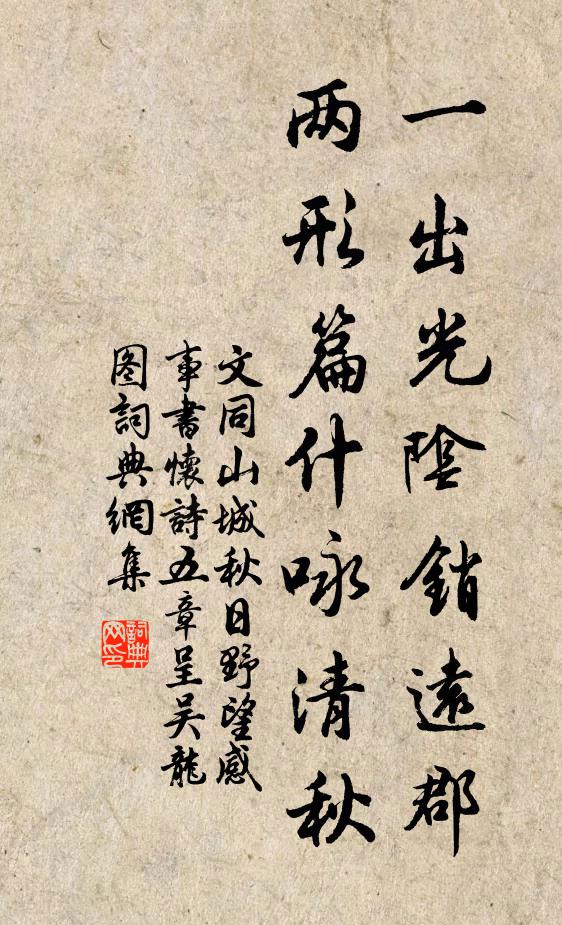 一出光陰銷遠郡
两形篇什咏清秋
文同山城秋日野望感
事書懷詩五章呈吴龍
图詞典網集
詞典
网印